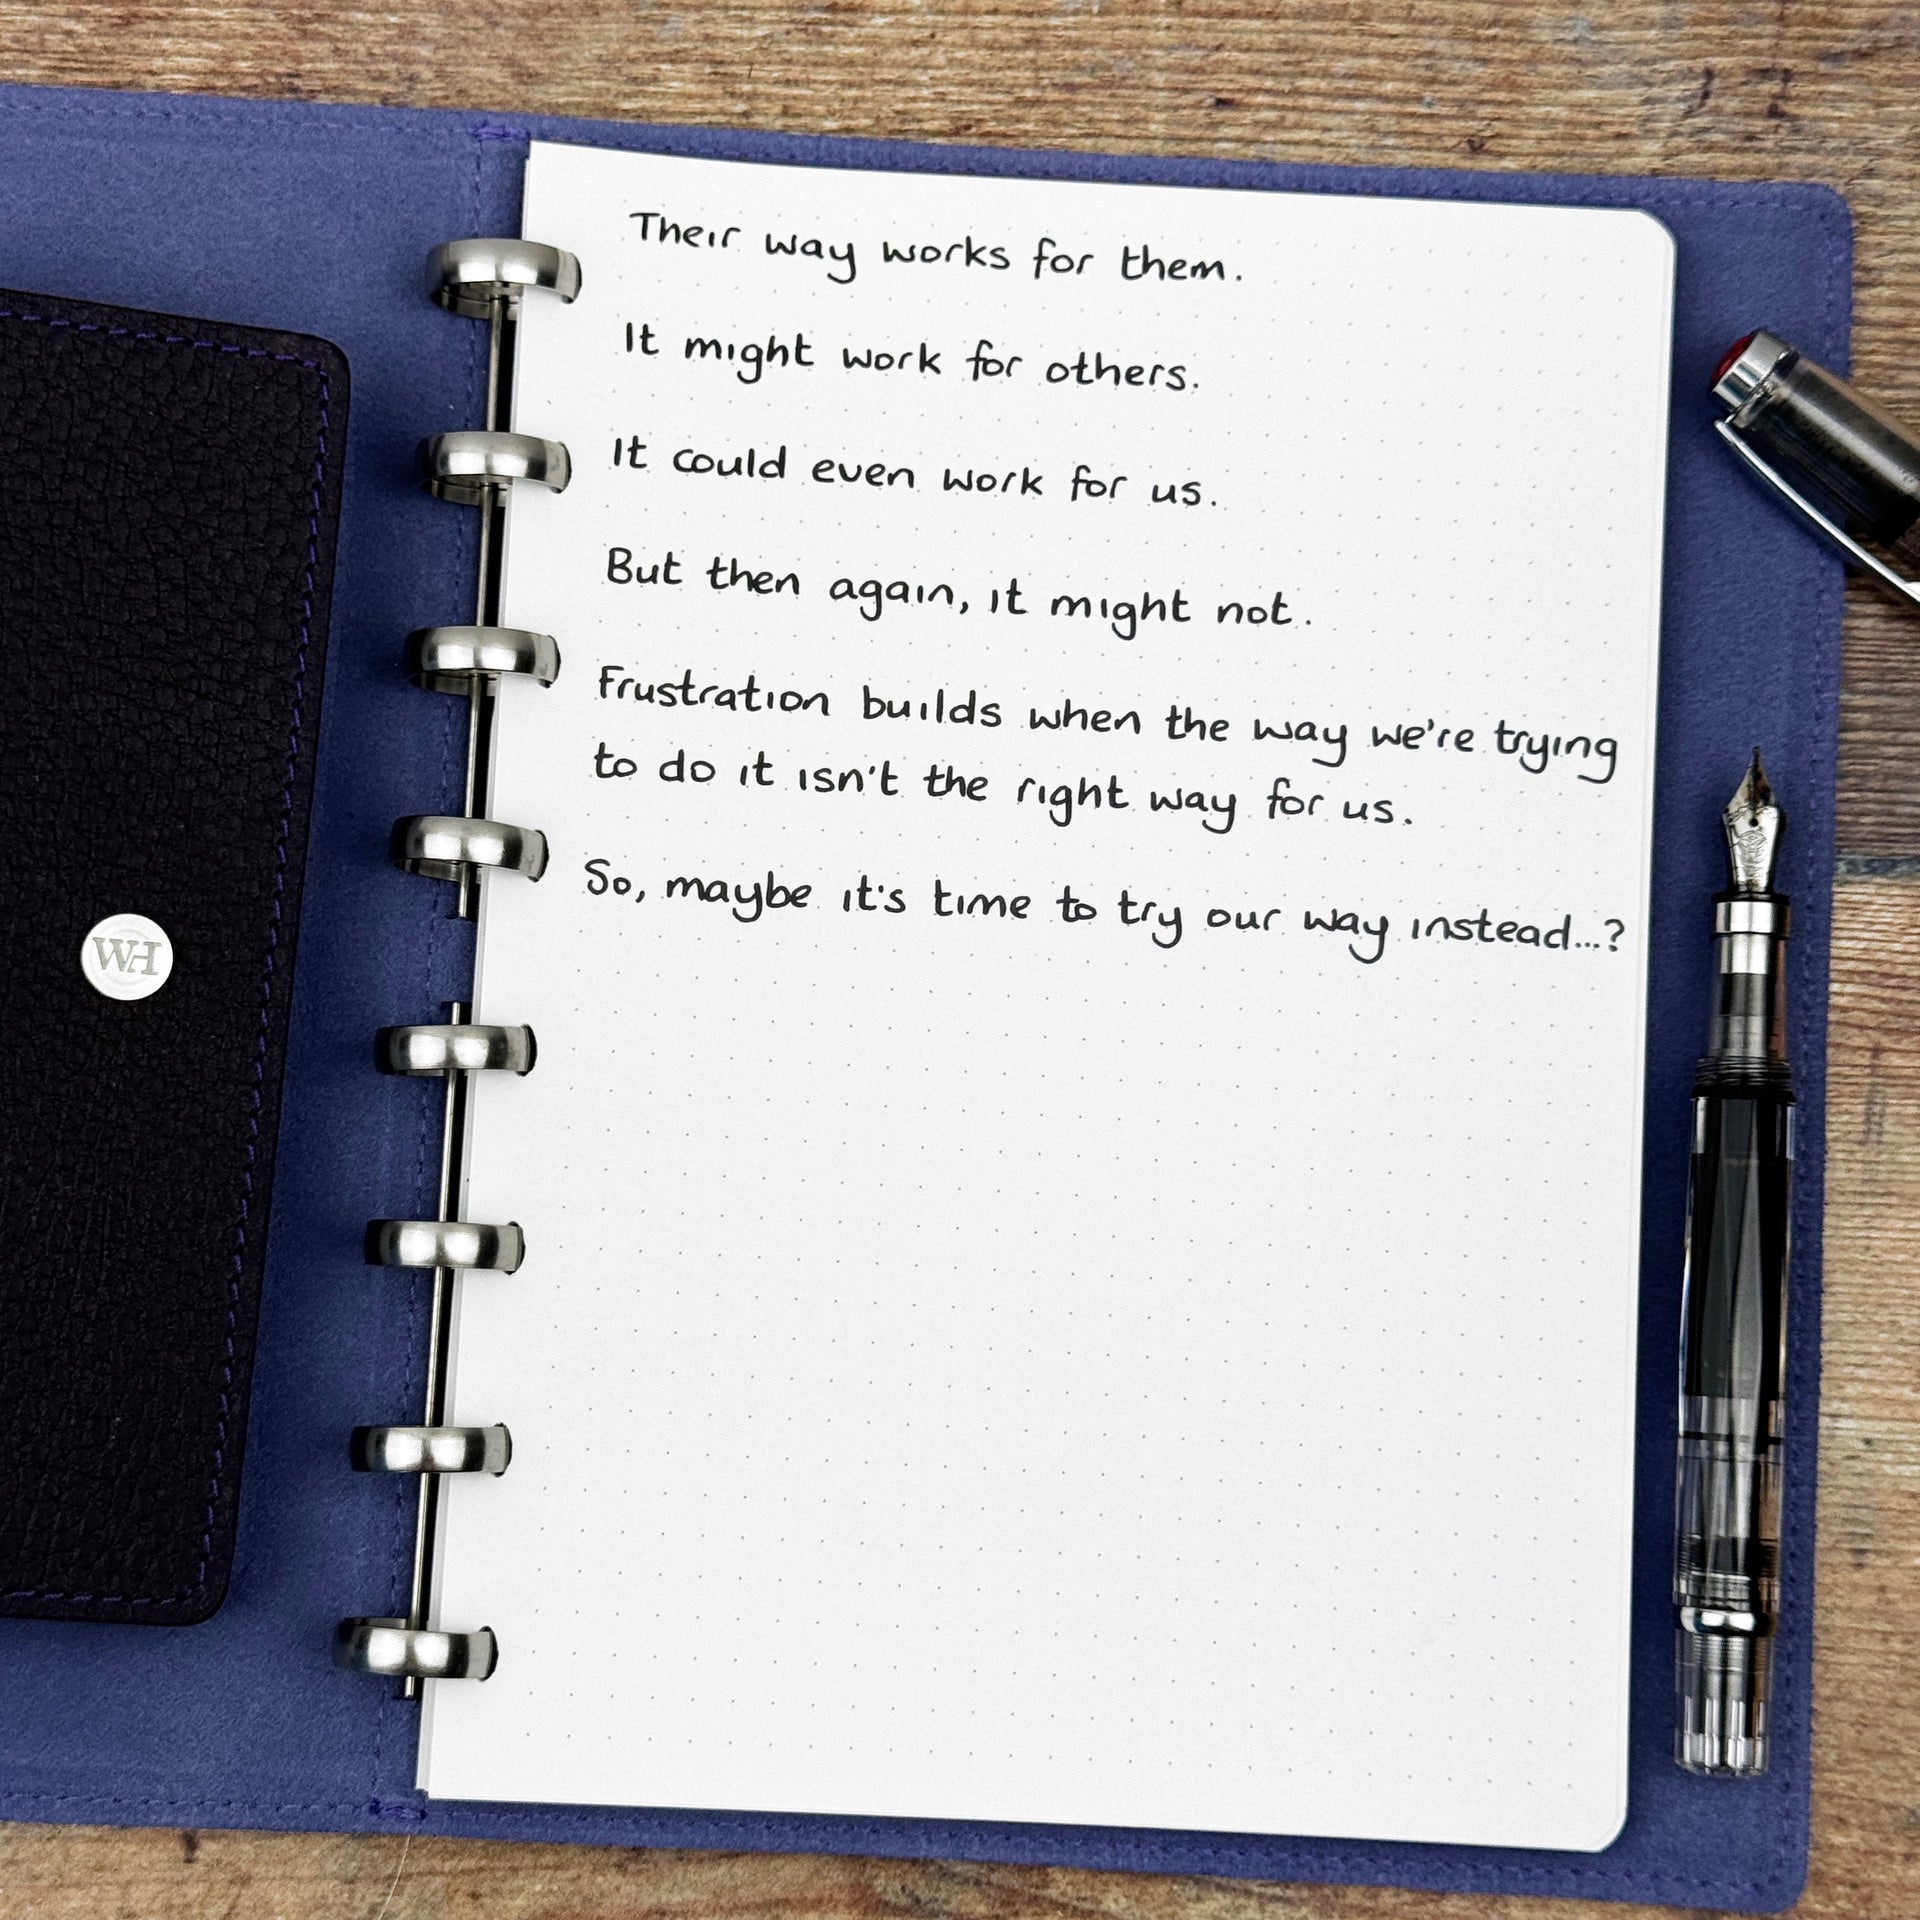 Their way works for them.
It might work for others.
It could even work for us.
But then again, it might not.
Frustration builds when the way we're trying
to do it isn't the right way for us.
So, maybe it's time to try our way instead...?
WH